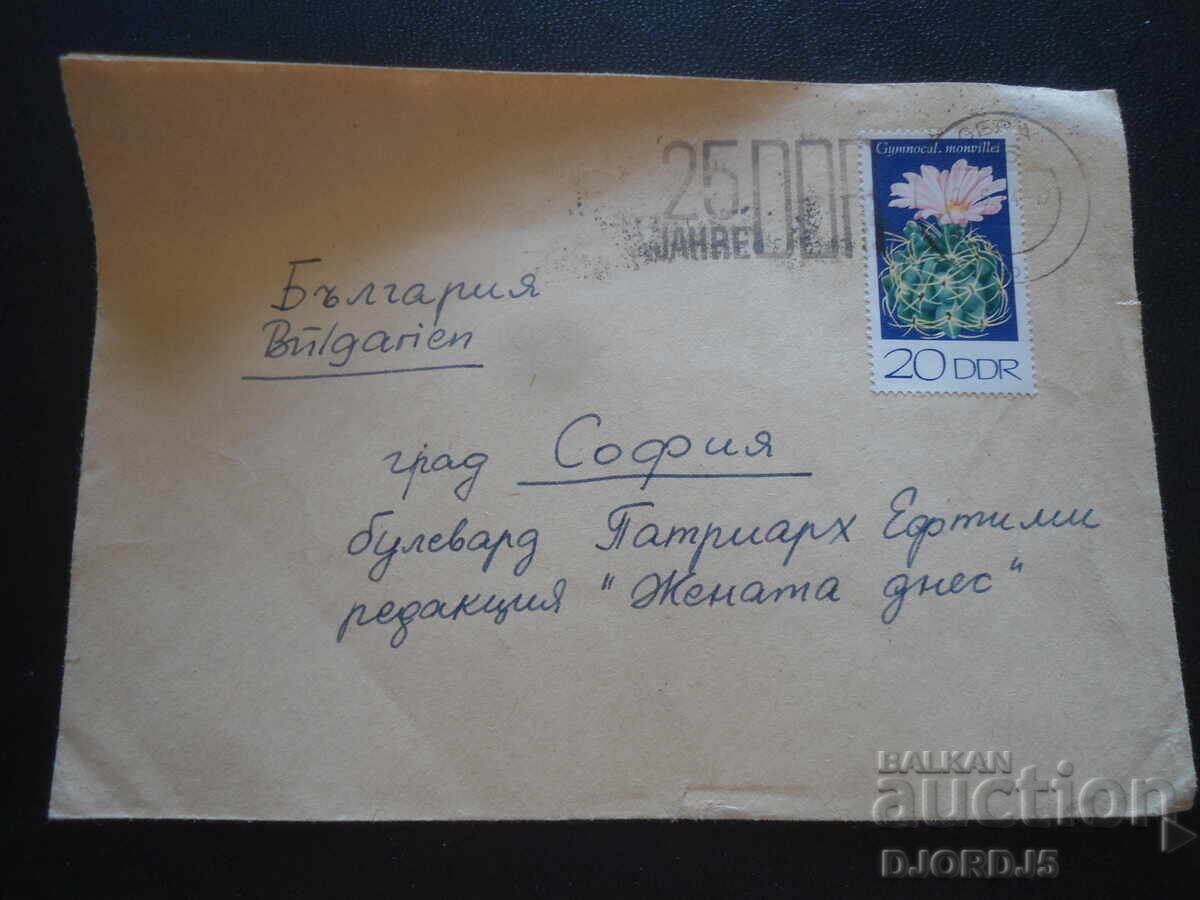 25 DDR
JAHRE
Gymnocal. monvillei
20 DDR
България
Bŭlgarien
град София
булевард Патриарх Ефтими
редакция "Жената днес"
BALKAN
auction
DJORDJ5